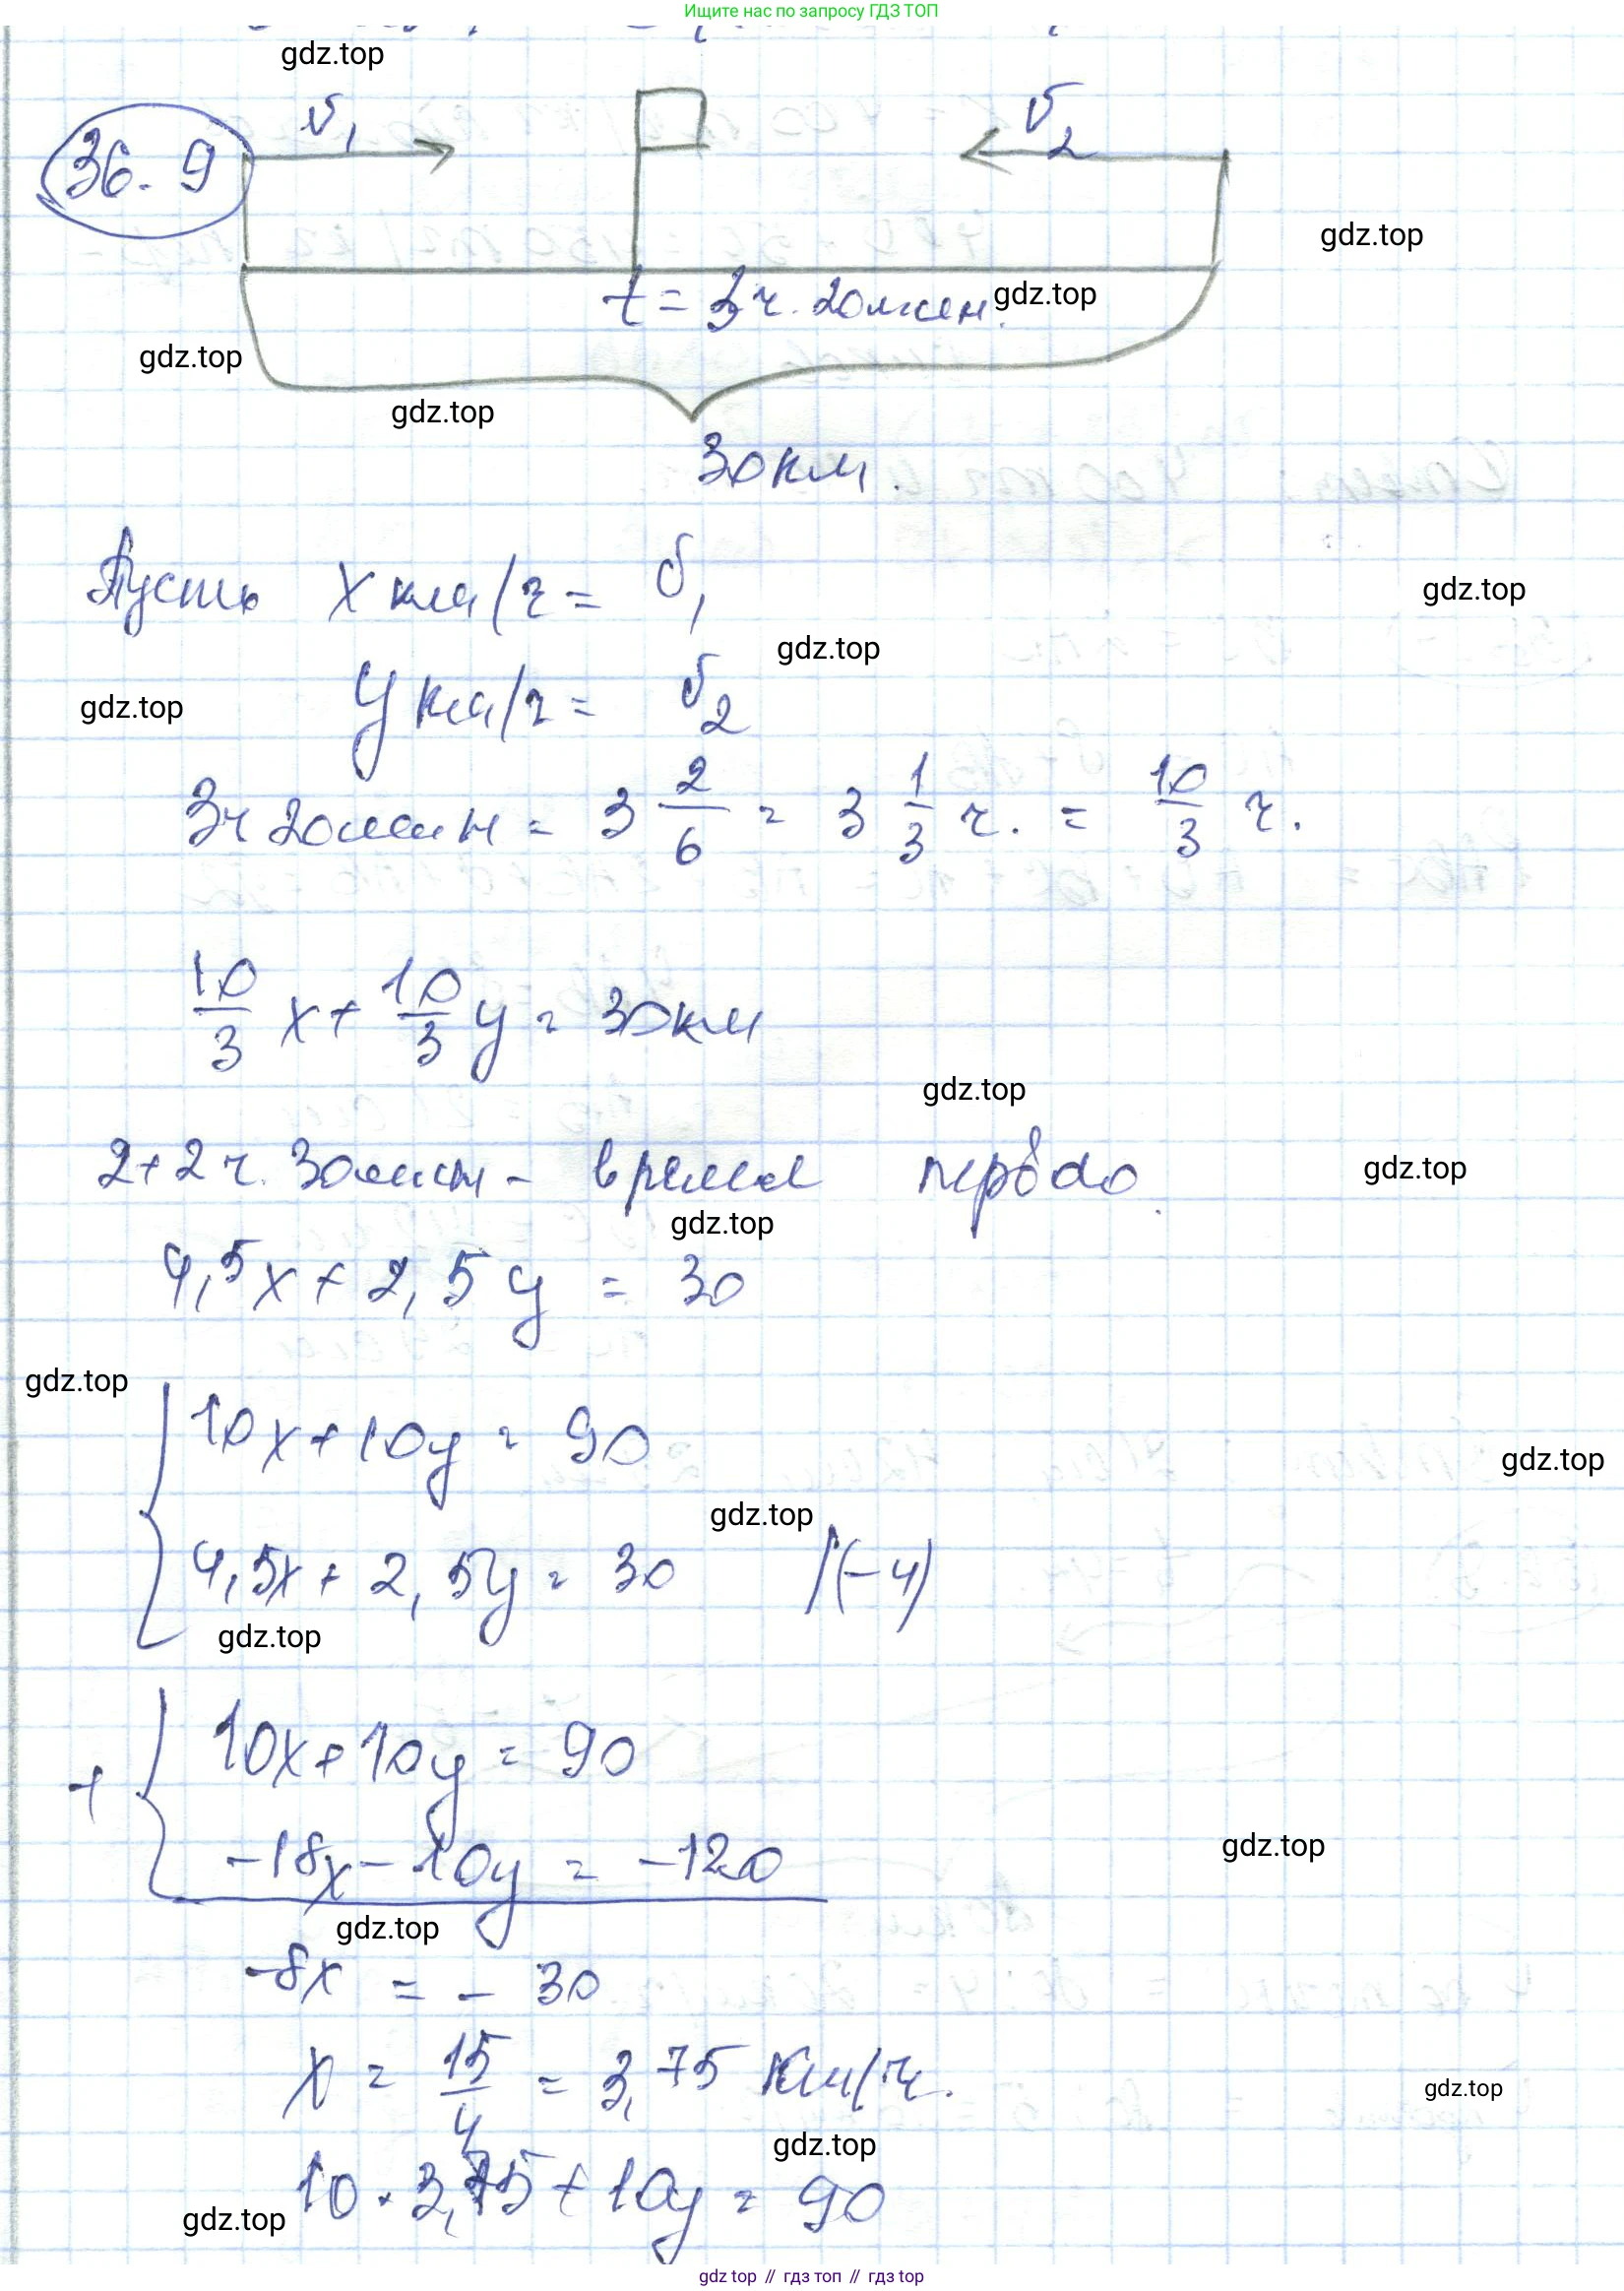 Ищите нас по запросу ГДЗ ТОП
gdz.top
36.9
v₁
v₂
gdz.top
t = 3ч. 20мин.
gdz.top
gdz.top
gdz.top
30км.
Пусть x км/ч = v₁
gdz.top
gdz.top
y км/ч = v₂
gdz.top
3ч 20мин = 3 2/6 = 3 1/3 ч. = 10/3 ч.
10/3 x + 10/3 y = 30км
gdz.top
2+2ч. 30мин - время
gdz.top
gdz.top
4,5x + 2,5y = 30
gdz.top
10x + 10y = 90
gdz.top
gdz.top
4,5x + 2,5y = 30 |(-4)
gdz.top
+ 10x + 10y = 90
gdz.top
-18x - 10y = -120
gdz.top
-8x = - 30
x = 15/4 = 3,75 км/ч.
gdz.top
gdz.top
10 · 3,75 + 10y = 90
gdz.top
gdz top // гдз топ // гдз top